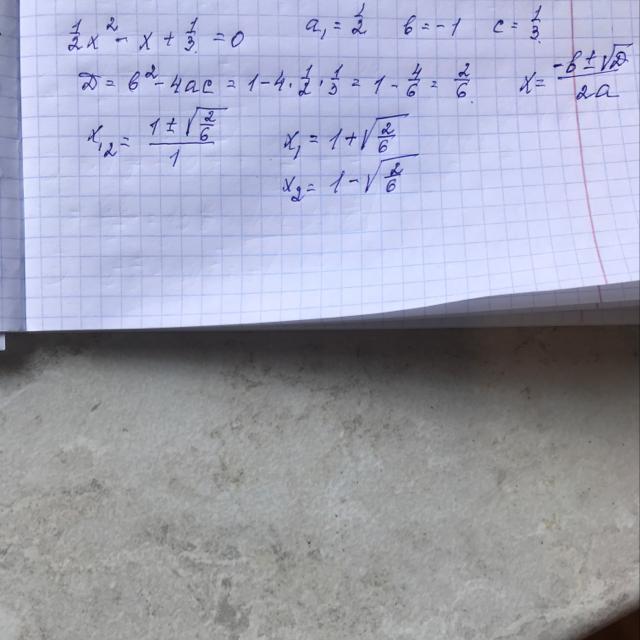 ½x² - x + ⅓ = 0    a₁ = ½    b = -1    c = ⅓
D = b² - 4ac = 1 - 4·½·⅓ = 1 - 4/6 = 2/6    x = (-b ± √D)/2a
x₁,₂ = (1 ± √(2/6))/1    x₁ = 1 + √(2/6)
x₂ = 1 - √(2/6)